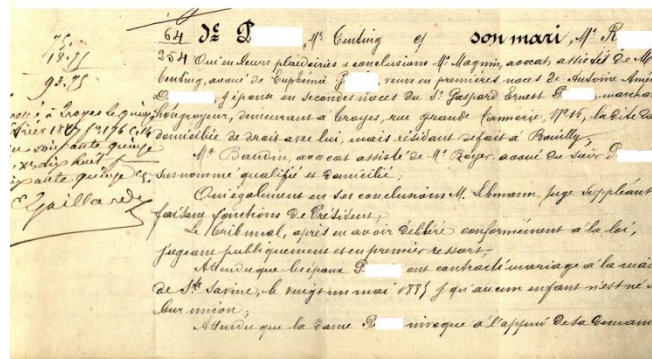 75.
18.75
93.75
64 De P , Me Centing c/ son mari, Me R
254 Ouï en leurs plaidoiries & conclusions Me Magnin, avocat, assisté de Me
Centing, avoué de Euphémie P , veuve en premières noces de Antoine
D & épouse en secondes noces du Sr Gaspard Ernest P , marchand
demeurant à Troyes, rue grande Tannerie, No 16, la dite
domiciliée de droit avec lui, mais résidant de fait à Bouilly;
Me Baudin, avocat assisté de Me Royer avoué du sieur P
surnommé qualifié et domicilié;
Ouï également en ses conclusions M. Lbmann, Juge suppléant
faisant fonctions de Président,
Le Tribunal, après en avoir délibéré conformément à la loi,
jugeant publiquement et en premier ressort,
Attendu que les époux P ont contracté mariage à la
de Ste Savine, le vingt un mai 1885 & qu'aucun enfant n'est né
leur union;
Attendu que la dame P invoque à l'appui de sa
à Troyes le
soixante quinze
dix huit
quinze
Gaillard